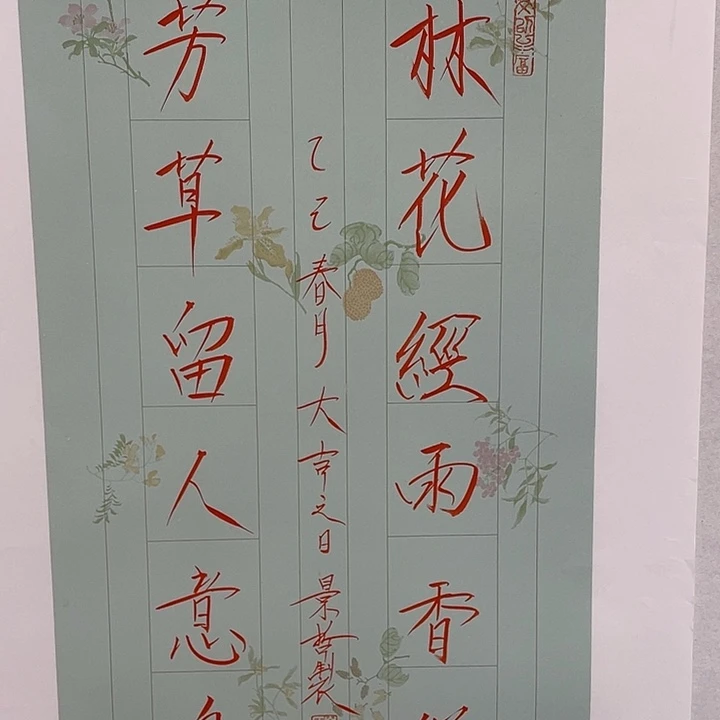 林花經雨香
芳草留人意
乙巳春月大吉之日景哲製